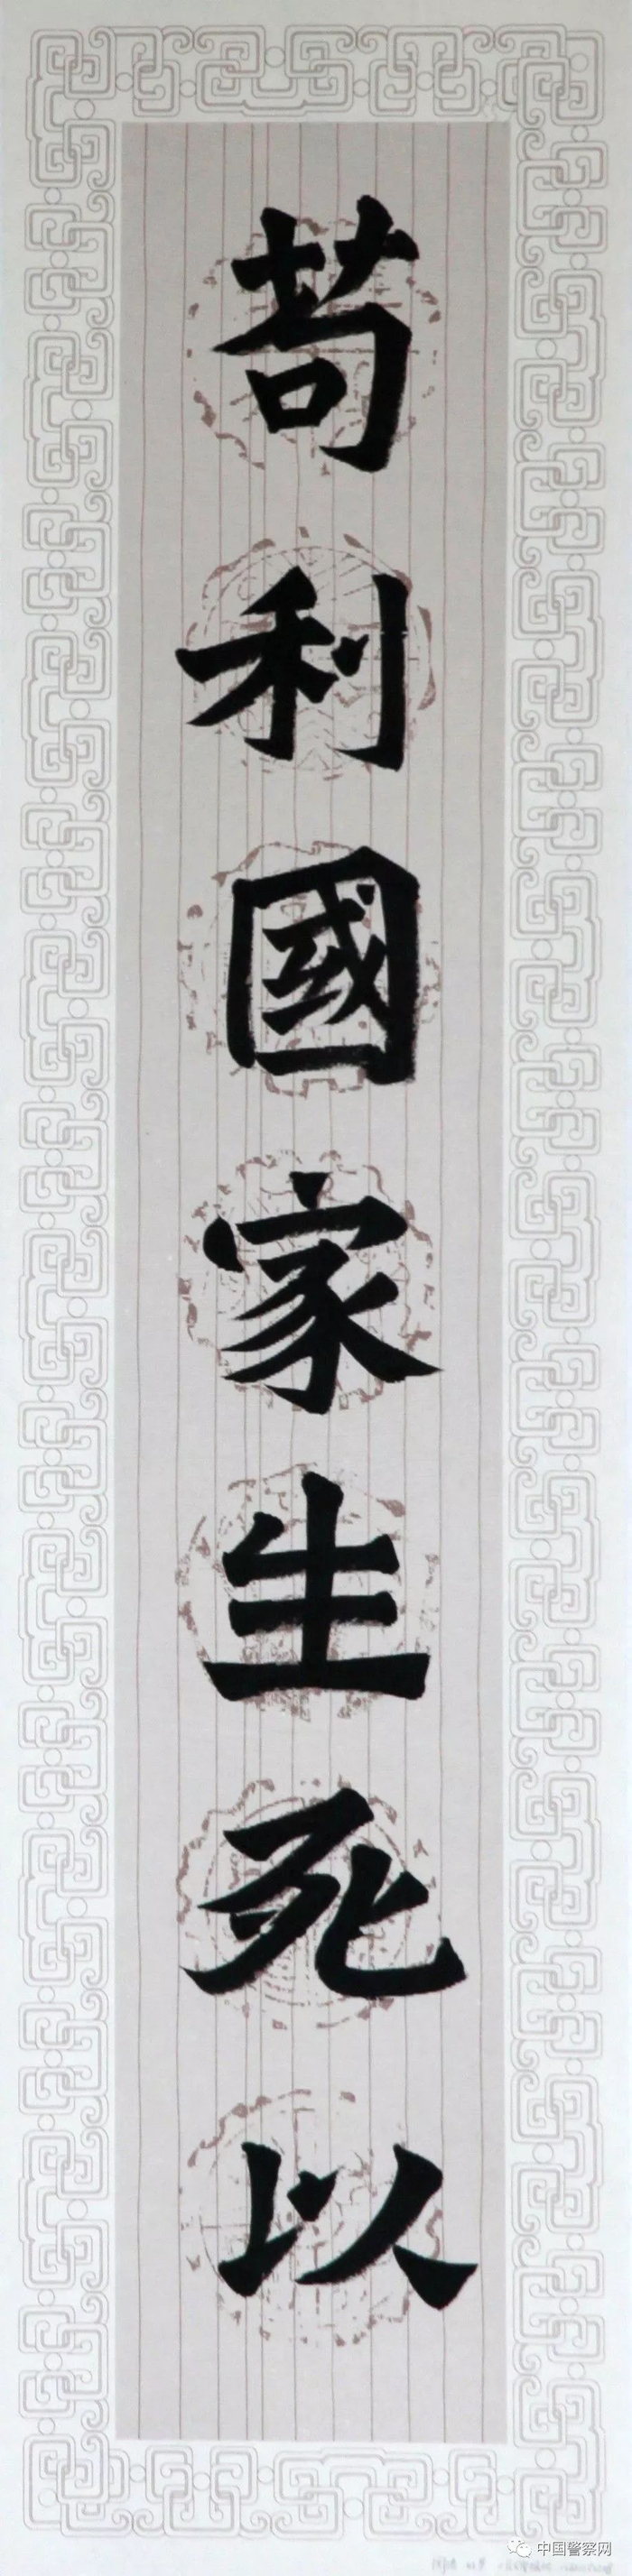 苟利國家生死以
中国警察网